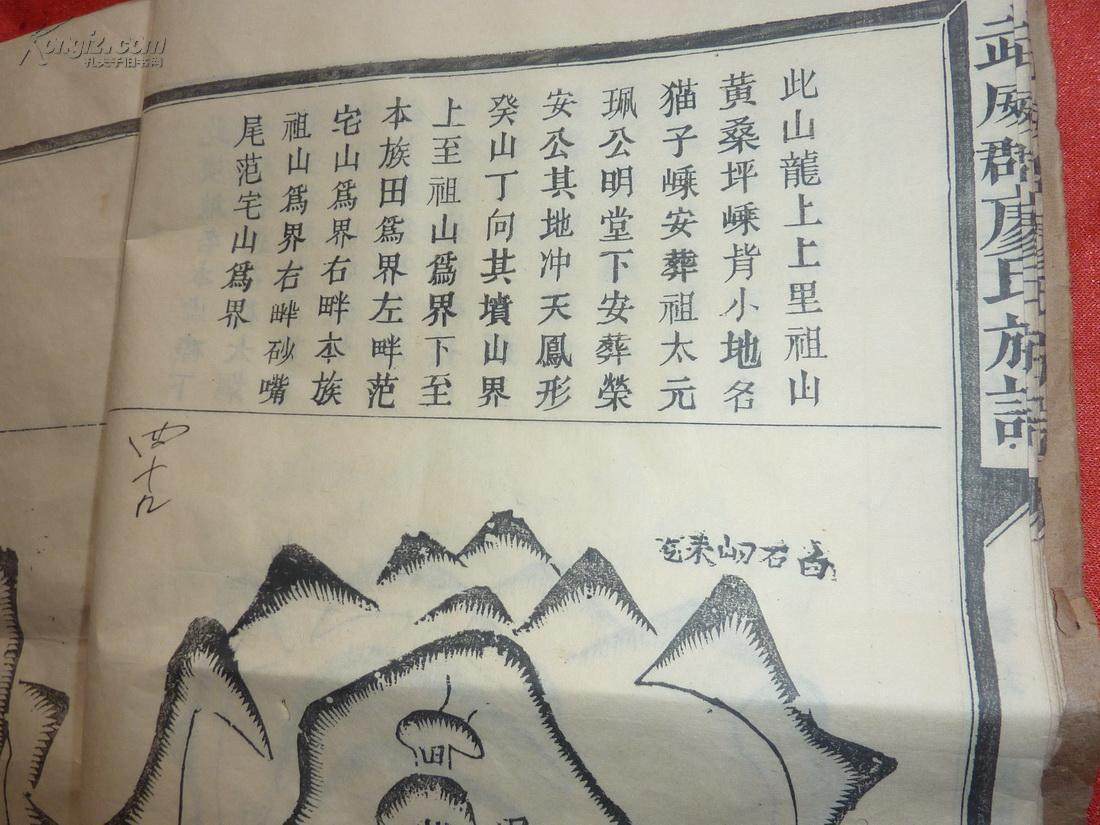 武威郡廖氏族譜
此山龍上上里祖山
黄桑坪㟍背小地名
猫子㟍安葬祖太元
珮公明堂下安葬榮
安公其地冲天鳳形
癸山丁向其墳山界
上至祖山爲界下至
本族田爲界左畔范
宅山爲界右畔本族
祖山爲界右畔砂嘴
尾范宅山爲界
Kongfz.com
孔夫子旧书网